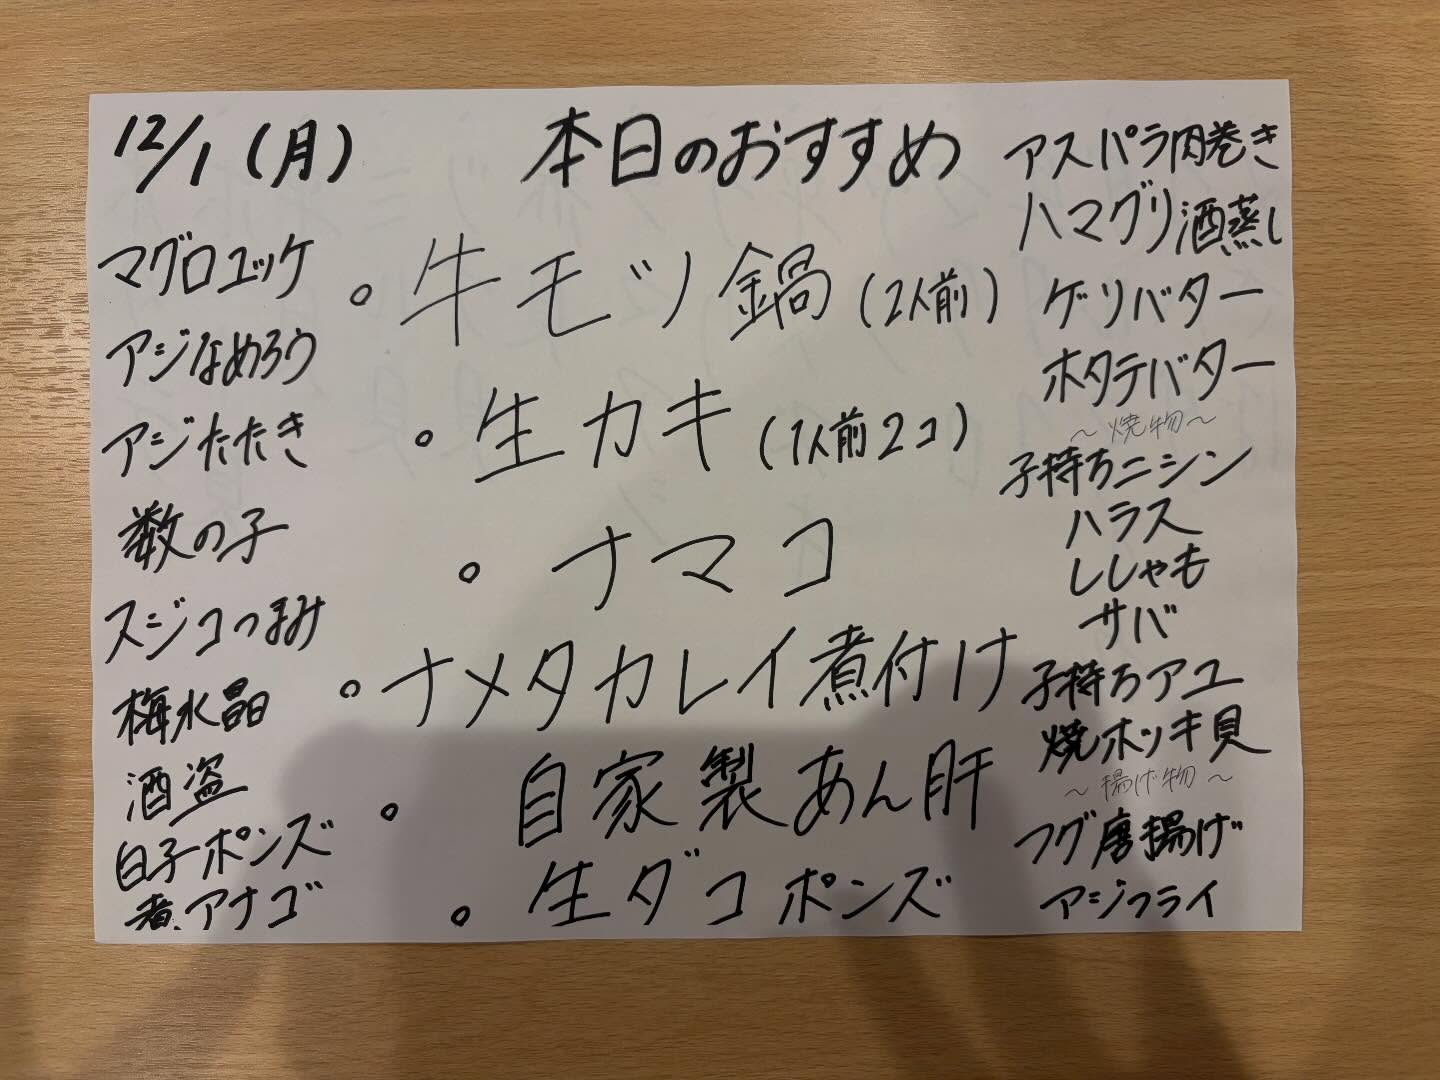 12/1(月)
本日のおすすめ
マグロユッケ
アジなめろう
アジたたき
数の子
スジコつまみ
梅水晶
酒盗
白子ポンズ
煮アナゴ
・牛モツ鍋(2人前)
・生カキ(1人前2コ)
・ナマコ
・ナメタカレイ煮付け
・自家製あん肝
・生ダコポンズ
アスパラ肉巻き
ハマグリ酒蒸し
ゲソバター
ホタテバター
～焼物～
子持ちニシン
ハラス
ししゃも
サバ
子持ちアユ
焼ホッキ貝
～揚げ物～
フグ唐揚げ
アジフライ